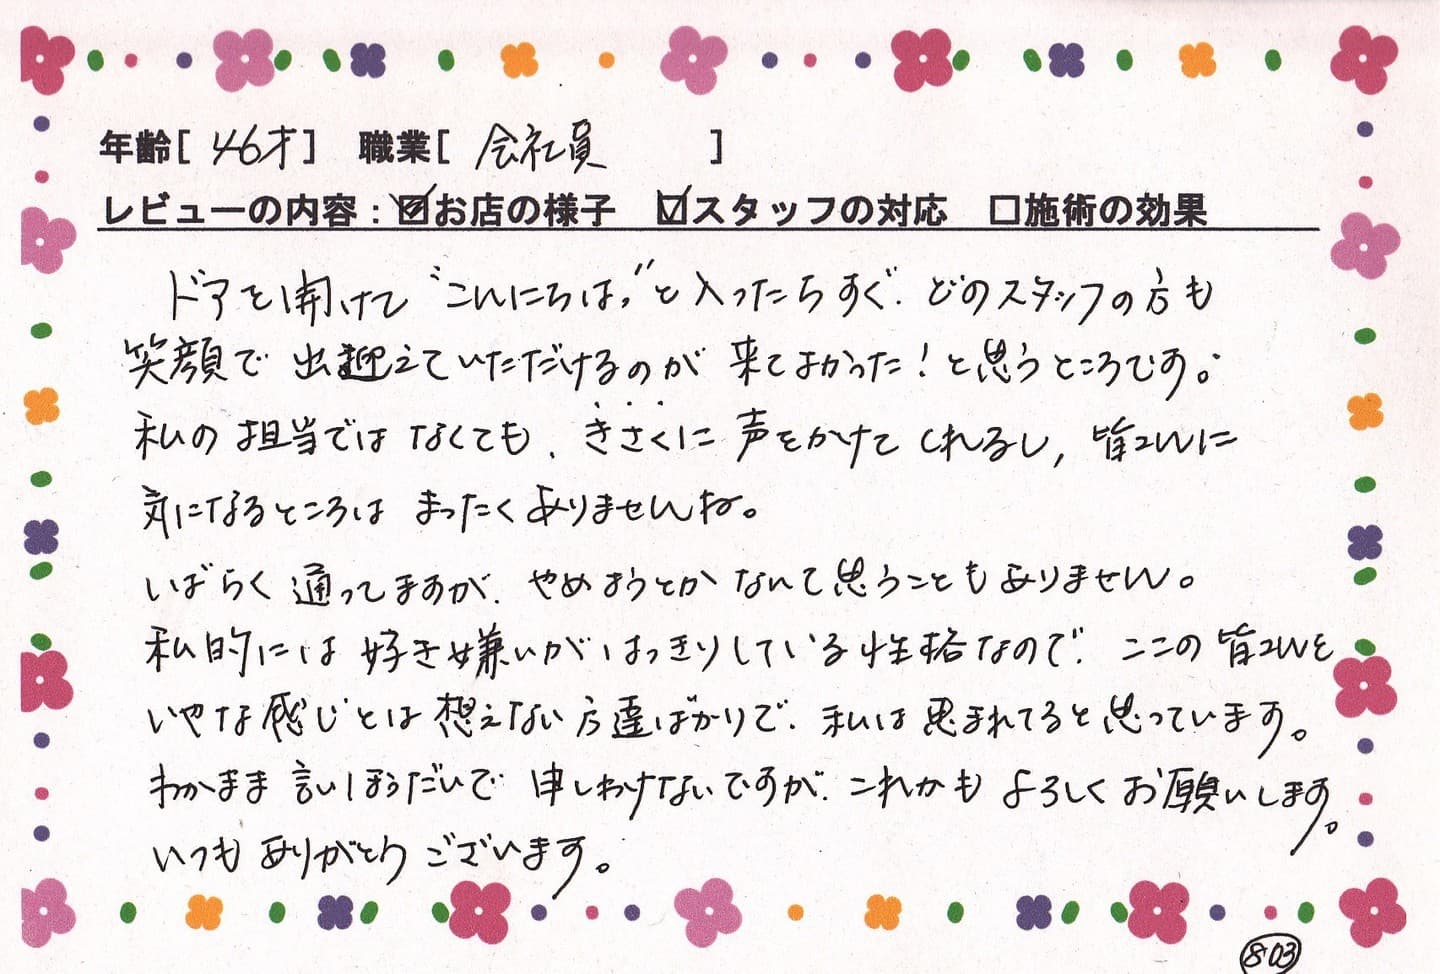 年齢[ 46才 ] 職業[ 会社員 ]
レビューの内容:☑お店の様子 ☑スタッフの対応 □施術の効果
ドアを開けて“こんにちは〟と入ったらすぐ、どのスタッフの方も
笑顔で出迎えていただけるのが来てよかった!と思うところです。
私の担当ではなくても、きさくに声をかけてくれるし、皆さんに
気になるところはまったくありませんね。
いばらく通ってますが、やめようとかないて思うこともありません。
私的には好き嫌いがはっきりしている性格なので、ここの皆さんを
いやな感じとは想えない方達ばかりで、私は恵まれてると思っています。
わがまま言いほうだいで申しわけないですが、これからもよろしくお願いします。
いつもありがとうございます。
803